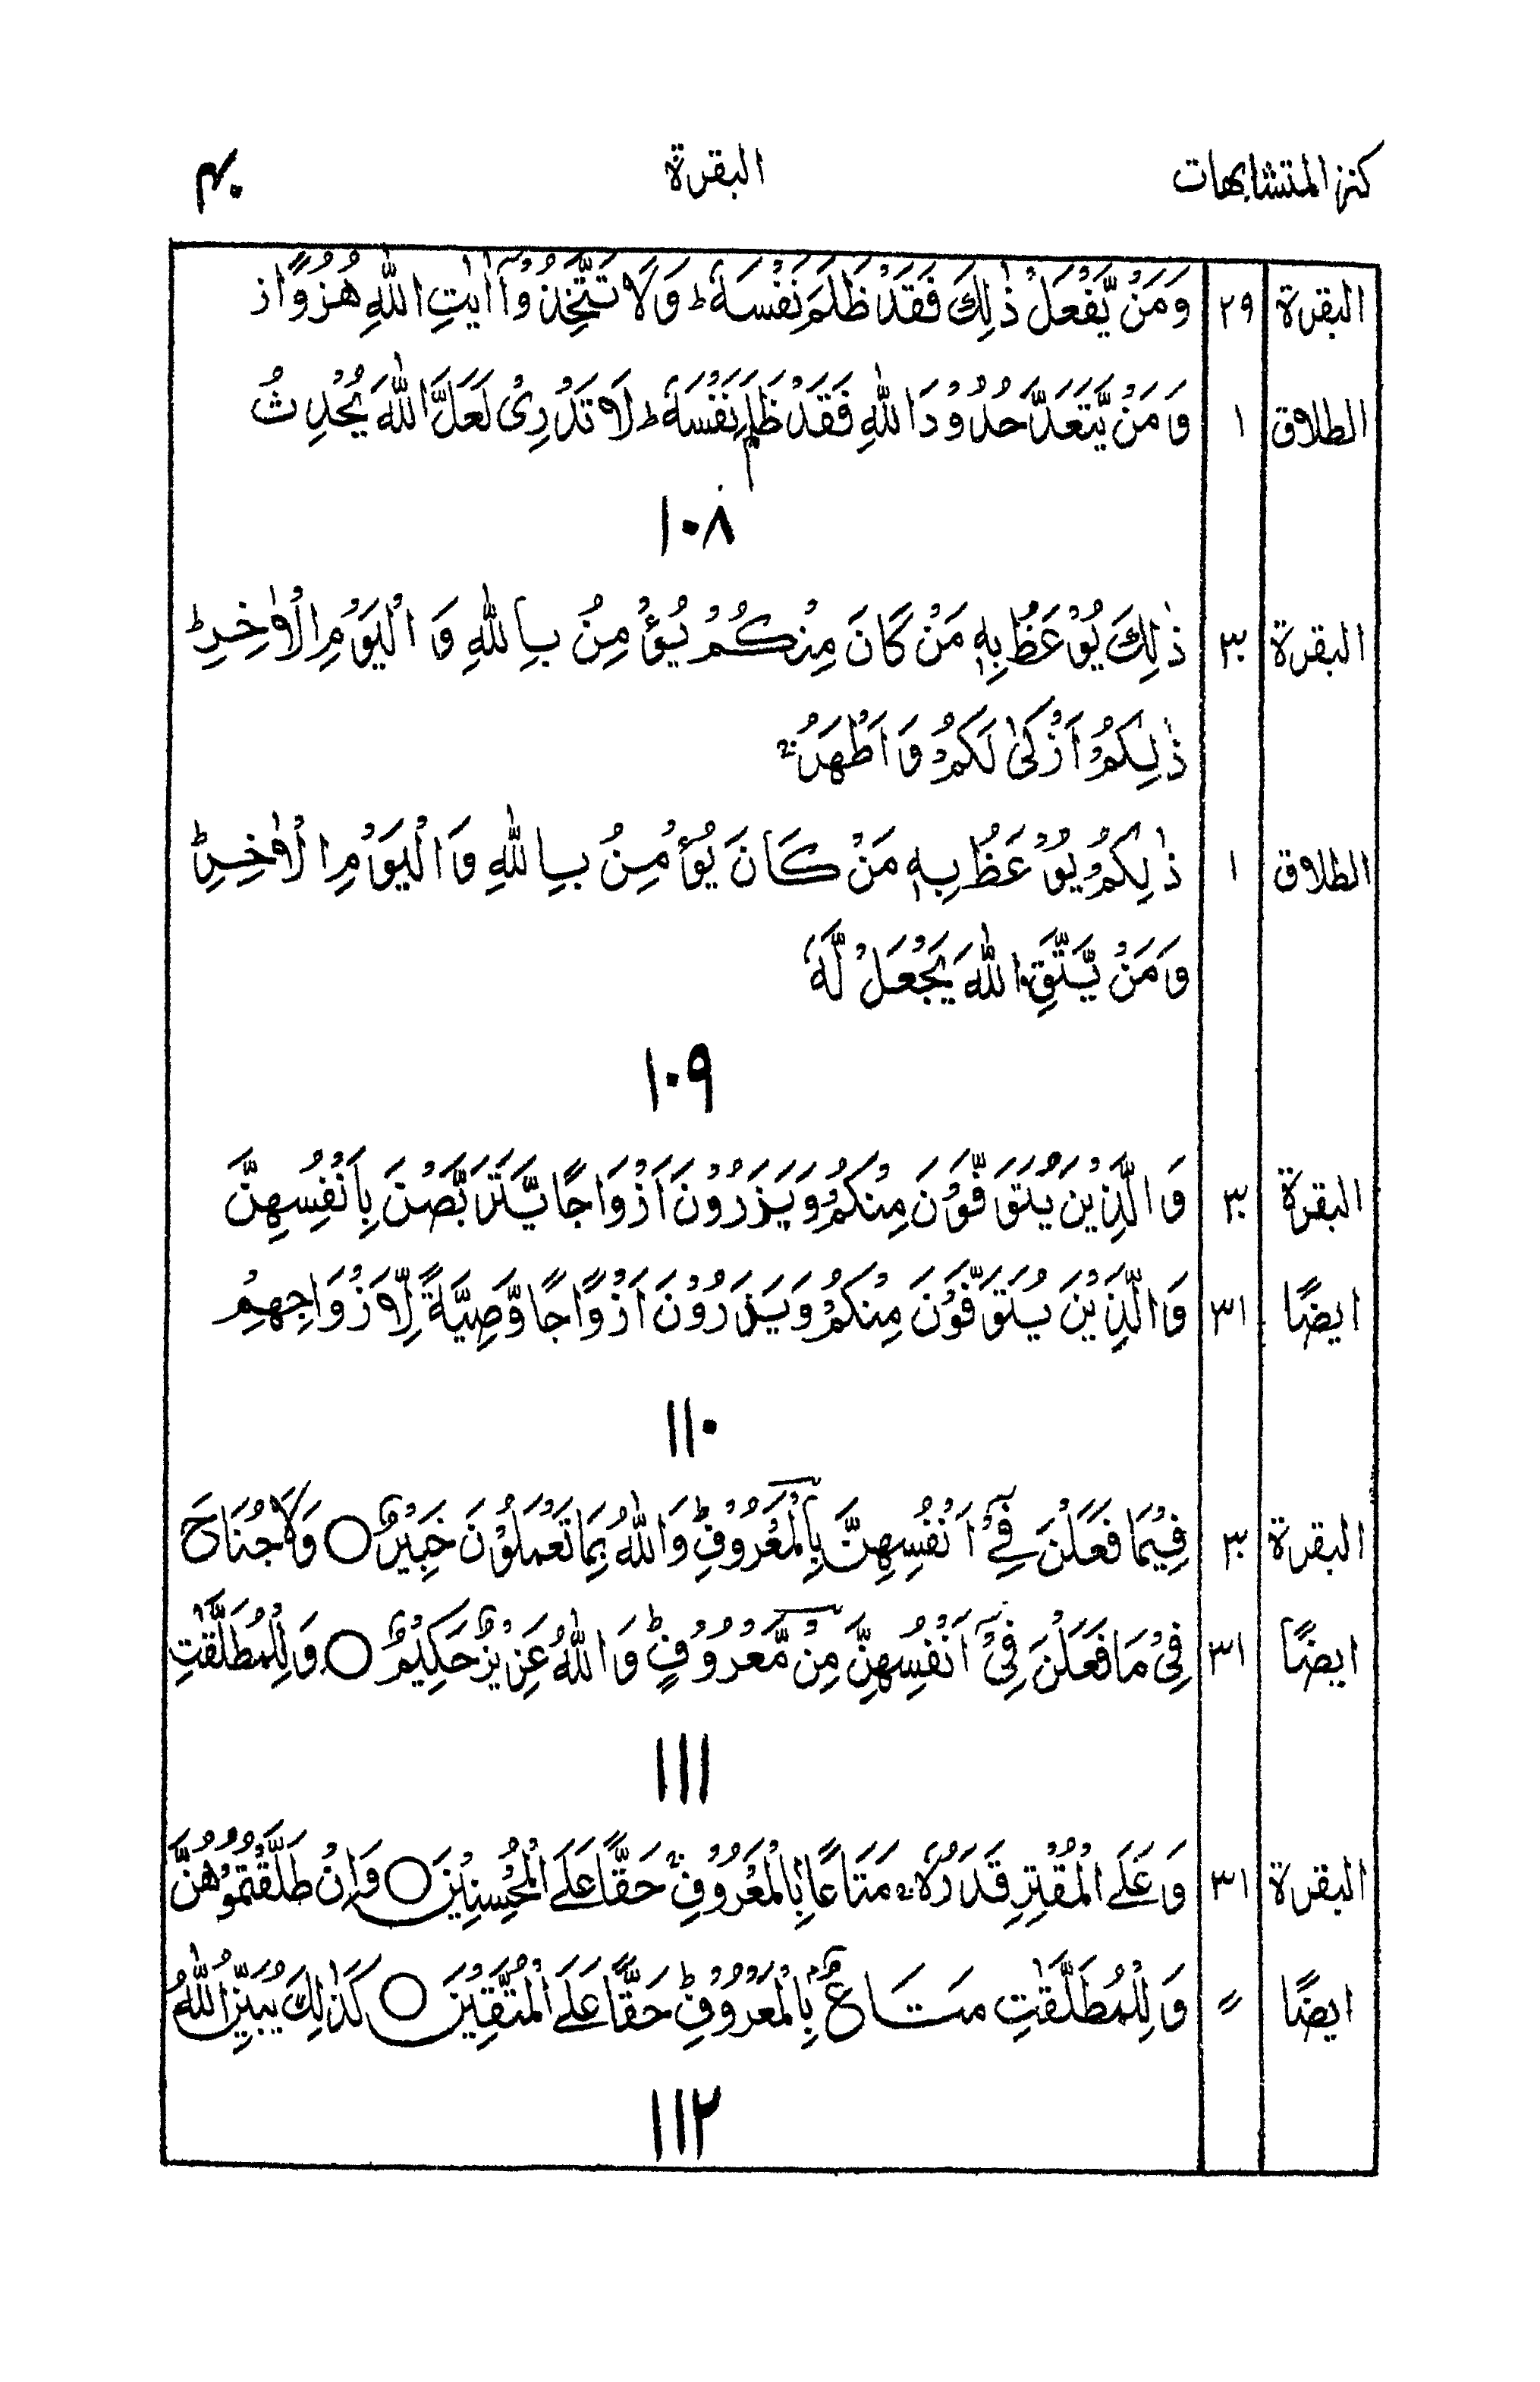 كنز المتشابهات البقرة ۴۰
البقرة ۲۹ وَمَنْ يَّفْعَلْ ذٰلِكَ فَقَدْ ظَلَمَ نَفْسَهٗ ط وَلَا تَتَّخِذُوْٓا اٰيٰتِ اللّٰهِ هُزُوًا ز
الطلاق ۱ وَمَنْ يَّتَعَدَّ حُدُوْدَ اللّٰهِ فَقَدْ ظَلَمَ نَفْسَهٗ ط لَا تَدْرِىْ لَعَلَّ اللّٰهَ يُحْدِثُ
۱۰۸
البقرة ۳۰ ذٰلِكَ يُوْعَظُ بِهٖ مَنْ كَانَ مِنْكُمْ يُؤْمِنُ بِاللّٰهِ وَ الْيَوْمِ الْاٰخِرِ ط
ذٰلِكُمْ اَزْكٰى لَكُمْ وَاَطْهَرُ ط
الطلاق ۱ ذٰلِكُمْ يُوْعَظُ بِهٖ مَنْ كَانَ يُؤْمِنُ بِاللّٰهِ وَالْيَوْمِ الْاٰخِرِ ط
وَمَنْ يَّتَّقِ اللّٰهَ يَجْعَلْ لَّهٗ
۱۰۹
البقرة ۳۰ وَالَّذِيْنَ يُتَوَفَّوْنَ مِنْكُمْ وَيَذَرُوْنَ اَزْوَاجًا يَّتَرَبَّصْنَ بِاَنْفُسِهِنَّ
ايضًا ۳۱ وَالَّذِيْنَ يُتَوَفَّوْنَ مِنْكُمْ وَيَذَرُوْنَ اَزْوَاجًا وَّصِيَّةً لِّاَزْوَاجِهِمْ
۱۱۰
البقرة ۳۰ فِيْمَا فَعَلْنَ فِىْٓ اَنْفُسِهِنَّ بِالْمَعْرُوْفِ ط وَاللّٰهُ بِمَا تَعْمَلُوْنَ خَبِيْرٌ ○ وَلَا جُنَاحَ
ايضًا ۳۱ فِىْ مَا فَعَلْنَ فِىْٓ اَنْفُسِهِنَّ مِنْ مَّعْرُوْفٍ ط وَاللّٰهُ عَزِيْزٌ حَكِيْمٌ ○ وَلِلْمُطَلَّقٰتِ
۱۱۱
البقرة ۳۱ وَعَلَى الْمُقْتِرِ قَدَرُهٗ ج مَتَاعًا بِالْمَعْرُوْفِ ج حَقًّا عَلَى الْمُحْسِنِيْنَ ○ وَاِنْ طَلَّقْتُمُوْهُنَّ
ايضًا 〃 وَلِلْمُطَلَّقٰتِ مَتَاعٌ بِالْمَعْرُوْفِ ط حَقًّا عَلَى الْمُتَّقِيْنَ ○ كَذٰلِكَ يُبَيِّنُ اللّٰهُ
۱۱۲